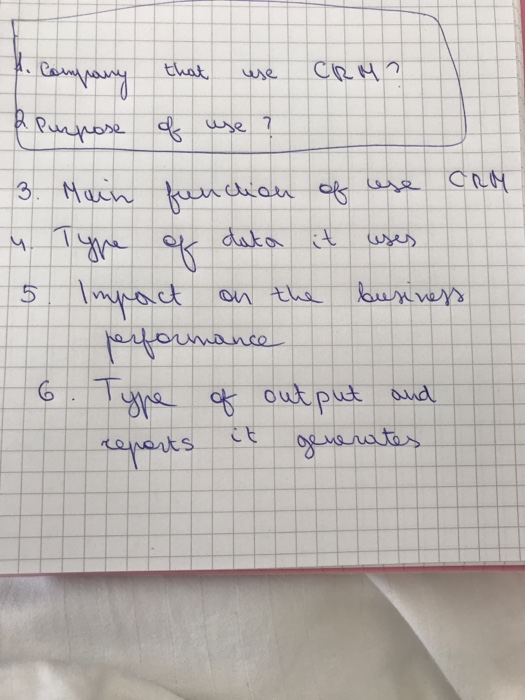 1. Company that use CRM?
2. Purpose of use?
3. Main function of use CRM
4. Type of data it uses
5. Impact on the business
performance
6. Type of output and
reports it generates